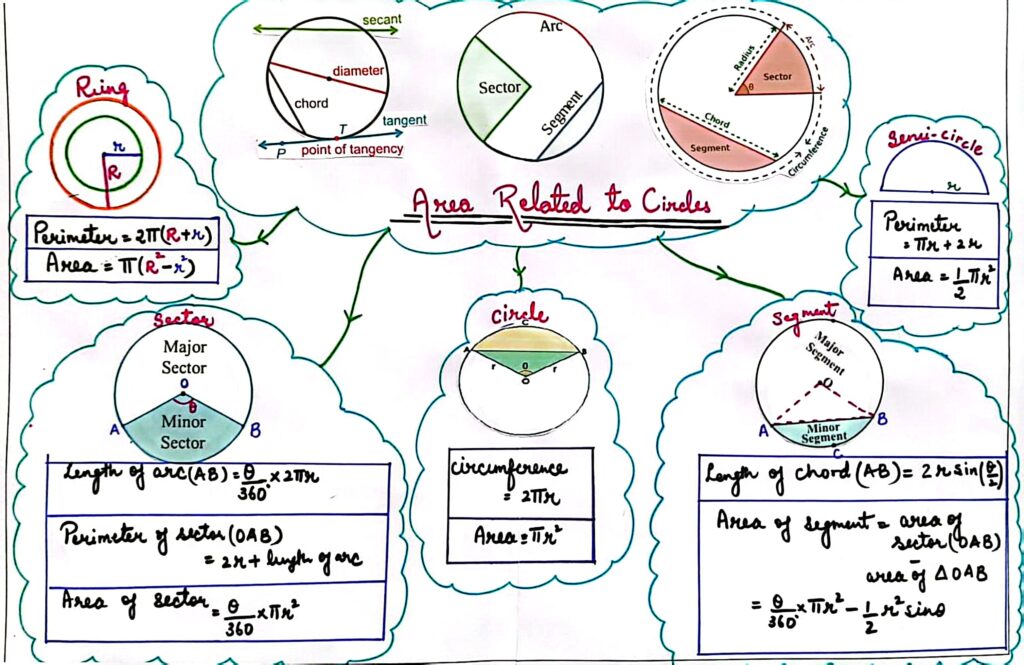 secant
diameter
chord
T
tangent
P
point of tangency
Arc
Sector
Segment
Radius
Arc
θ
Sector
Chord
Segment
Circumference
Area Related to Circles
Ring
r
R
Perimeter = 2π(R+r)
Area = π(R²-r²)
Semi-circle
r
Perimeter
= πr + 2r
Area = 1/2 πr²
Sector
Major
Sector
O
θ
A
Minor
Sector
B
Length of arc (AB) = θ/360° × 2πr
Perimeter of sector (OAB)
= 2r + length of arc
Area of sector = θ/360 × πr²
Circle
C
A
B
r
θ
r
O
circumference
= 2πr
Area = πr²
Segment
Major
Segment
O
A
B
Minor
Segment
C
Length of chord (AB) = 2r sin(θ/2)
Area of segment = area of
sector (OAB)
-
area of ΔOAB
= θ/360° × πr² - 1/2 r² sinθ